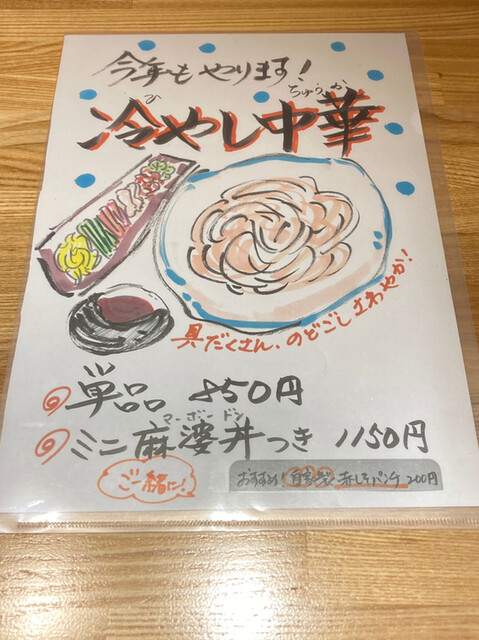 今年もやります!
ひ ちゅうか
冷やし中華
具だくさん、のどごしさわやか!
単品 850円
マーボー ドン
ミニ麻婆丼つき 1150円
ご一緒に!
おすすめ! 自家製 赤しそパンチ 200円